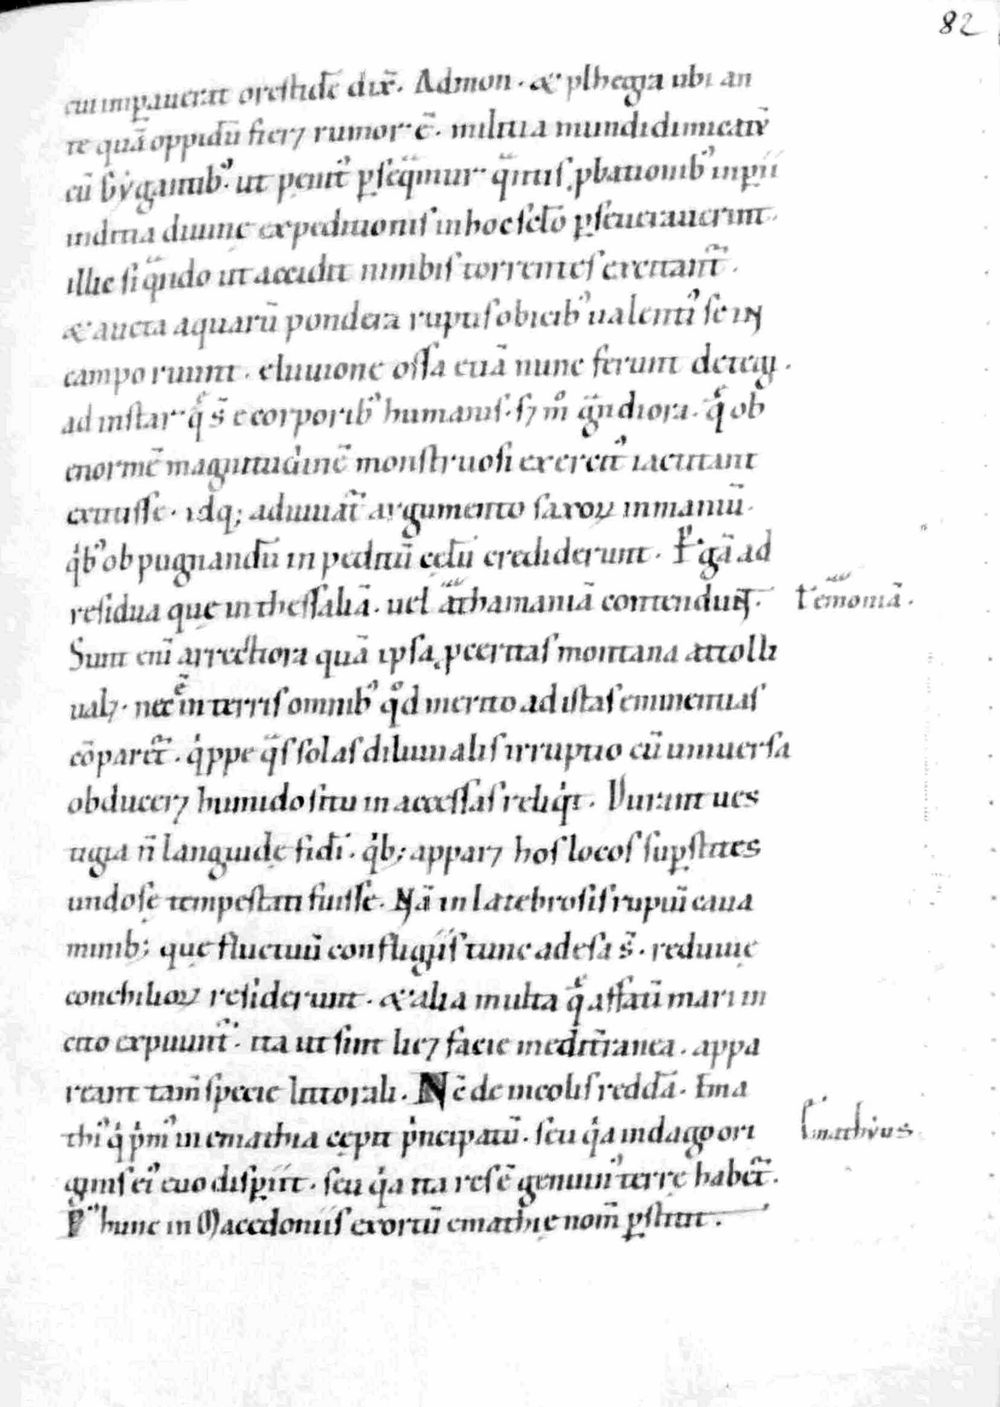 82
cui imperauerat orestidē dix̄. Admon. & phlegra ubi an
te quā oppidū fier⁊ rumor ē. militia mundi dimicatū
cū gygantib᾽. ut penit᾽ ꝑseq̄mur q̄ntis ꝓbationib᾽ inꝑii
inditia diuine expeditionis in hoc sc̄lo ꝑseuerauerint.
illic si q̄ndo ut accidit nimbis torrentes excitant᷑.
& aucta aquarū pondera ruptis obicib᾽ ualenti᾽ se in
campo ruunt. eluuione ossa etiā nunc ferunt detegi.
ad instar q̄ s̄ e corporib᾽ humanis. s⁊ m° gͣndiora. q̄ ob
enormē magnitudinē monstruosi exercit᾽ iactitant
extitisse. idq; adiuuat᷑ argumento saxoꝝ inmaniū.
qͥb᾽ ob pugnandū in peditū cęlū crediderunt. Pergā ad
residua que in thessaliā. uel athamaniā contendunt. ł emoniā.
Sunt eni᷑ arrectiora quā ipsa ꝓcerritas montana attolli
ual⁊. nec ē in terris omnib᾽ qd̊ merito ad istas eminentias
cōparet᷑. qͥppe q̄s solas diluuialis irruptio cū uniuersa
obducer⁊ humido situ inaccessas reliqͥt. Durant ues
tigia n̄ languidę fidi. qͥb; appar⁊ hos locos suꝑstites
undosę tempestati fuisse. Nā in latebrosis rupiū caua
minib; quę fluctuū confligiis tunc adesa s̄. reduuię
conchilioꝝ residerunt. & alia multa q̄ affatū mari in
cito expuunt᷑. ita ut sint lic⁊ facie mediterranea. appa
reant tam̄ specie littorali. Nc̄ de incolis reddā. Ema
thi᾽ qͥ pͥm᾽ in emathia cępit pͥncipatū. seu qͥa indago ori Emathius
ginis ei᾽ euo disꝑiit. seu qͥa ita res ē genuin᾽ terrę habet᷑.
P᾽ hunc in Macedoniis exortū emathię nom̄ ꝑstitit.